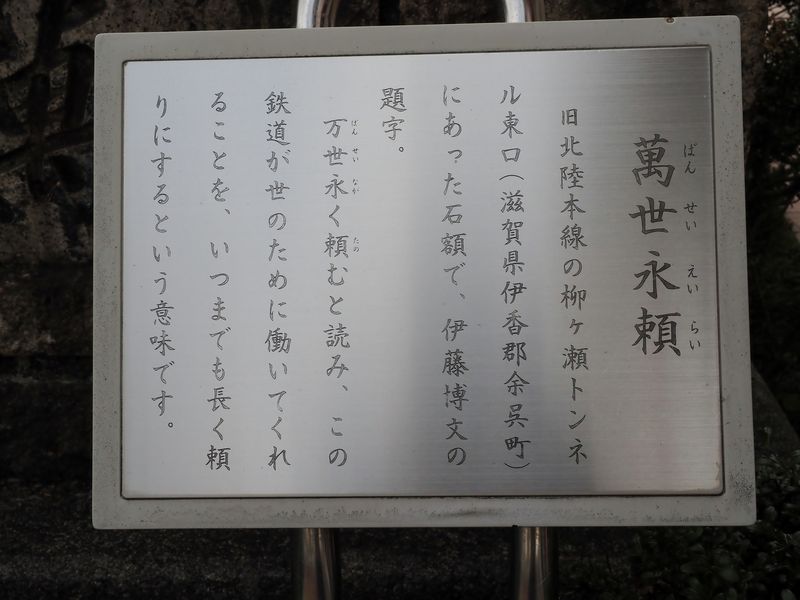 萬世永頼
ばん せい えい らい
旧北陸本線の柳ヶ瀬トンネ
ル東口(滋賀県伊香郡余呉町)
にあった石額で、伊藤博文の
題字。
万世永く頼むと読み、この
ばん せい なが たの
鉄道が世のために働いてくれ
ることを、いつまでも長く頼
りにするという意味です。